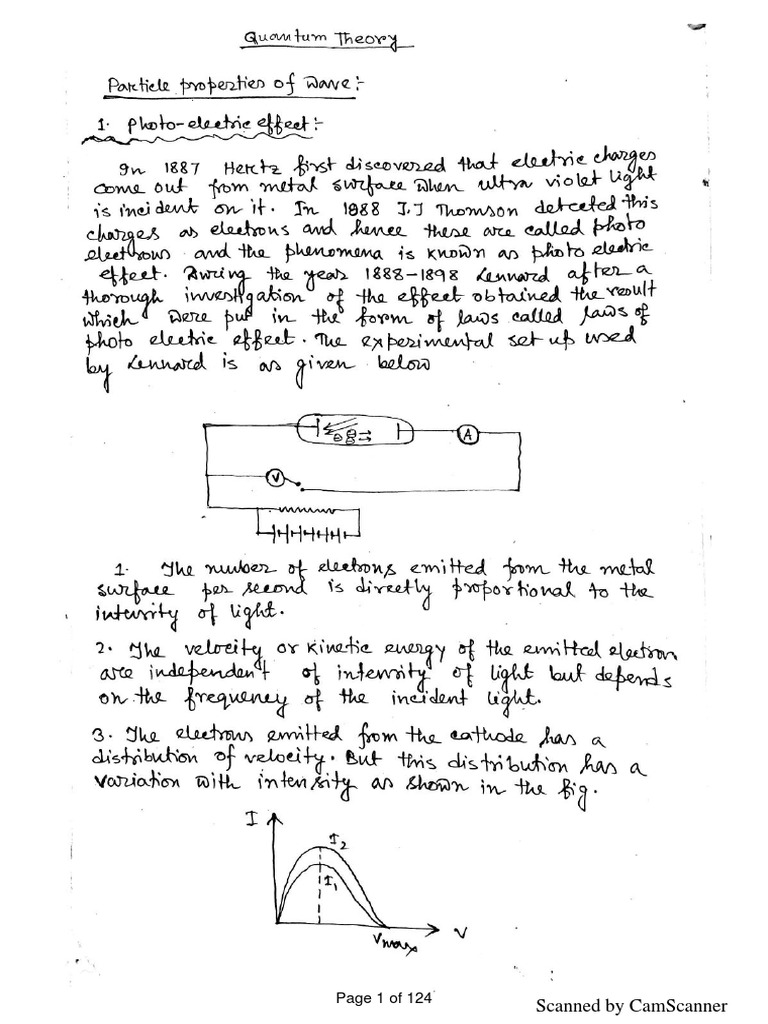 Quantum Theory
Particle properties of wave:-
1. Photo-electric effect:-
In 1887 Hertz first discovered that electric charges
come out from metal surface when ultra violet light
is incident on it. In 1988 J.J Thomson detected this
charges as electrons and hence these are called photo
electrons and the phenomena is known as photo electric
effect. During the year 1888-1898 Lennard after a
thorough investigation of the effect obtained the result
which were put in the form of laws called laws of
photo electric effect. The experimental set up used
by Lennard is as given below
A
V
1. The number of electrons emitted from the metal
surface per second is directly proportional to the
intensity of light.
2. The velocity or kinetic energy of the emitted electron
are independent of intensity of light but depends
on the frequency of the incident light.
3. The electrons emitted from the cathode has a
distribution of velocity. But this distribution has a
variation with intensity as shown in the fig.
I
I2
I1
V
Vmax
Page 1 of 124
Scanned by CamScanner